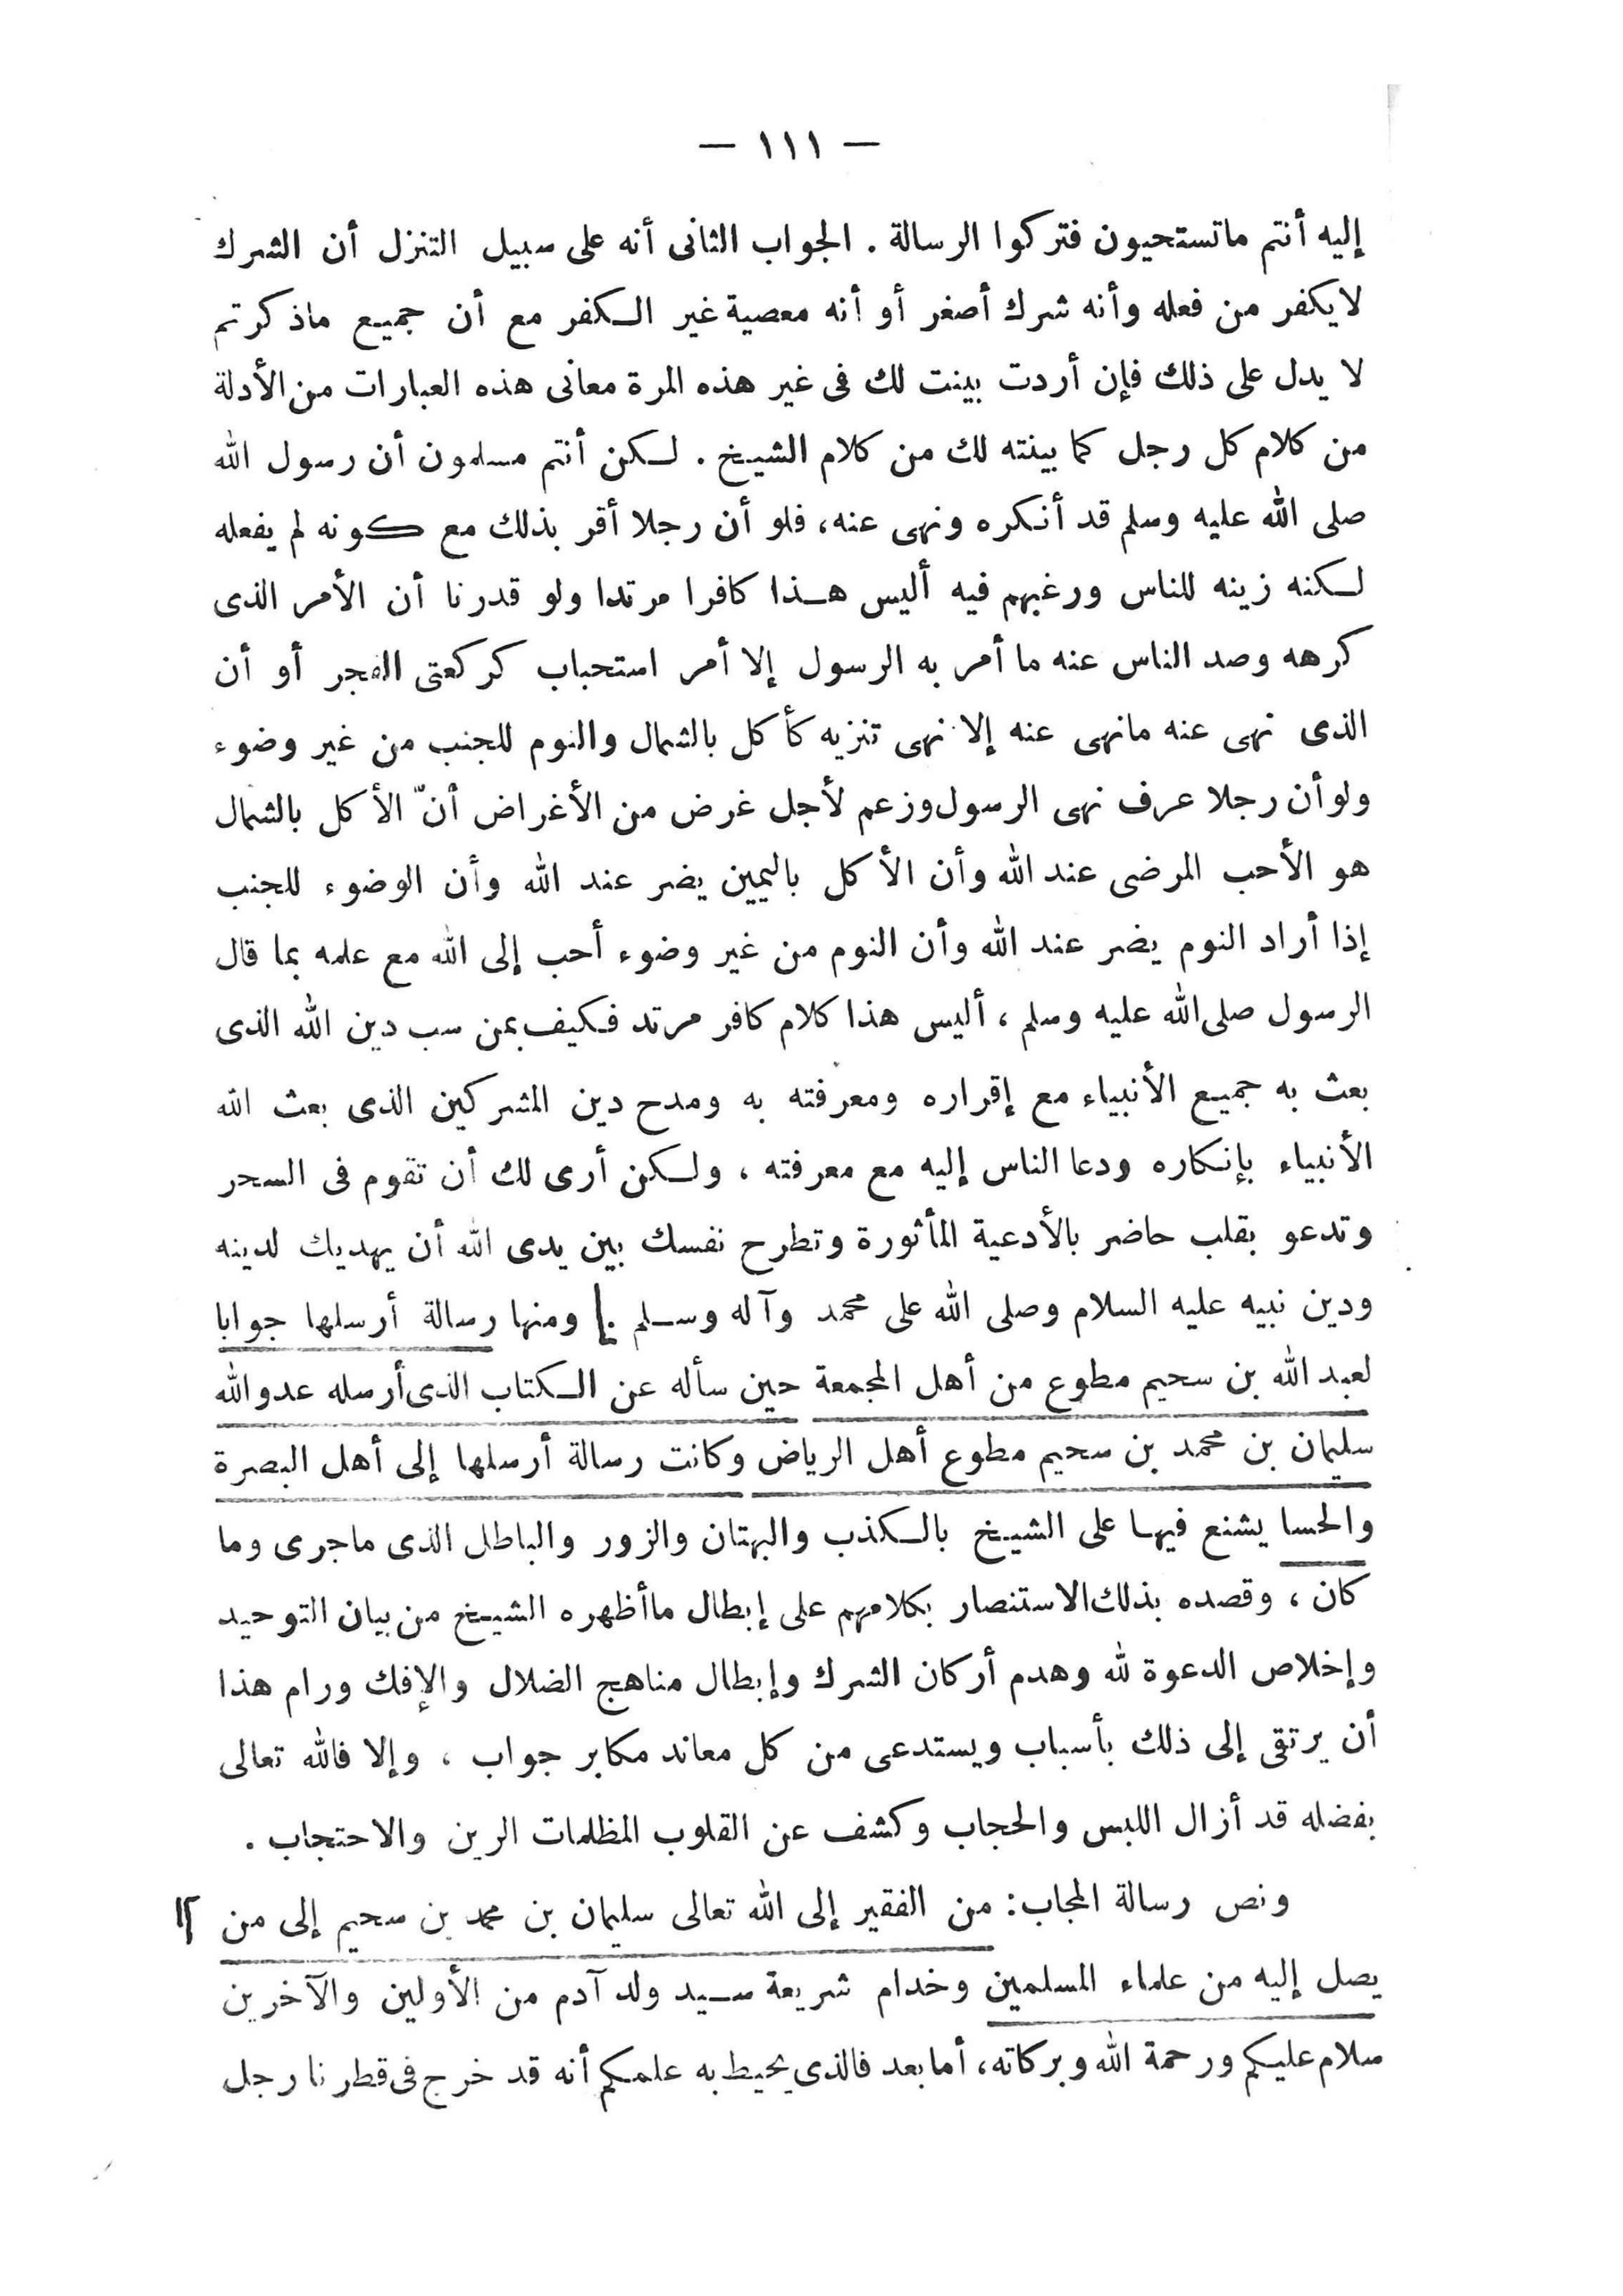 — ١١١ —
إليه أنتم ماتستحيون فتركوا الرسالة . الجواب الثانى أنه على سبيل التنزل أن الشرك
لايكفر من فعله وأنه شرك أصغر أو أنه معصية غير الكفر مع أن جميع ماذكرتم
لا يدل على ذلك فإن أردت بينت لك فى غير هذه المرة معانى هذه العبارات من الأدلة
من كلام كل رجل كما بينته لك من كلام الشيخ . لكن أنتم مسلمون أن رسول الله
صلى الله عليه وسلم قد أنكره ونهى عنه، فلو أن رجلا أقر بذلك مع كونه لم يفعله
لكنه زينه للناس ورغبهم فيه أليس هذا كافرا مرتدا ولو قدرنا أن الأمر الذى
كرهه وصد الناس عنه ما أمر به الرسول إلا أمر استحباب كركعتى الفجر أو أن
الذى نهى عنه مانهى عنه إلا نهى تنزيه كأكل بالشمال والنوم للجنب من غير وضوء
ولوأن رجلا عرف نهى الرسول وزعم لأجل غرض من الأغراض أنّ الأكل بالشمال
هو الأحب المرضى عند الله وأن الأكل باليمين يضر عند الله وأن الوضوء للجنب
إذا أراد النوم يضر عند الله وأن النوم من غير وضوء أحب إلى الله مع علمه بما قال
الرسول صلى الله عليه وسلم ، أليس هذا كلام كافر مرتد فكيف بمن سب دين الله الذى
بعث به جميع الأنبياء مع إقراره ومعرفته به ومدح دين المشركين الذى بعث الله
الأنبياء بإنكاره ودعا الناس إليه مع معرفته ، ولكن أرى لك أن تقوم فى السحر
وتدعو بقلب حاضر بالأدعية المأثورة وتطرح نفسك بين يدى الله أن يهديك لدينه
ودين نبيه عليه السلام وصلى الله على محمد وآله وسلم . ومنها رسالة أرسلها جوابا
لعبد الله بن سحيم مطوع من أهل المجمعة حين سأله عن الكتاب الذى أرسله عدو الله
سليمان بن محمد بن سحيم مطوع أهل الرياض وكانت رسالة أرسلها إلى أهل البصرة
والحسا يشنع فيها على الشيخ بالكذب والبهتان والزور والباطل الذى ماجرى وما
كان ، وقصده بذلك الاستنصار بكلامهم على إبطال ماأظهره الشيخ من بيان التوحيد
وإخلاص الدعوة لله وهدم أركان الشرك وإبطال مناهج الضلال والإفك ورام هذا
أن يرتقى إلى ذلك بأسباب ويستدعى من كل معاند مكابر جواب ، وإلا فالله تعالى
بفضله قد أزال اللبس والحجاب وكشف عن القلوب المظلمات الرين والاحتجاب .
ونص رسالة المجاب: من الفقير إلى الله تعالى سليمان بن محمد بن سحيم إلى من
يصل إليه من علماء المسلمين وخدام شريعة سيد ولد آدم من الأولين والآخرين
سلام عليكم ورحمة الله وبركاته، أما بعد فالذى يحيط به علمكم أنه قد خرج فى قطرنا رجل